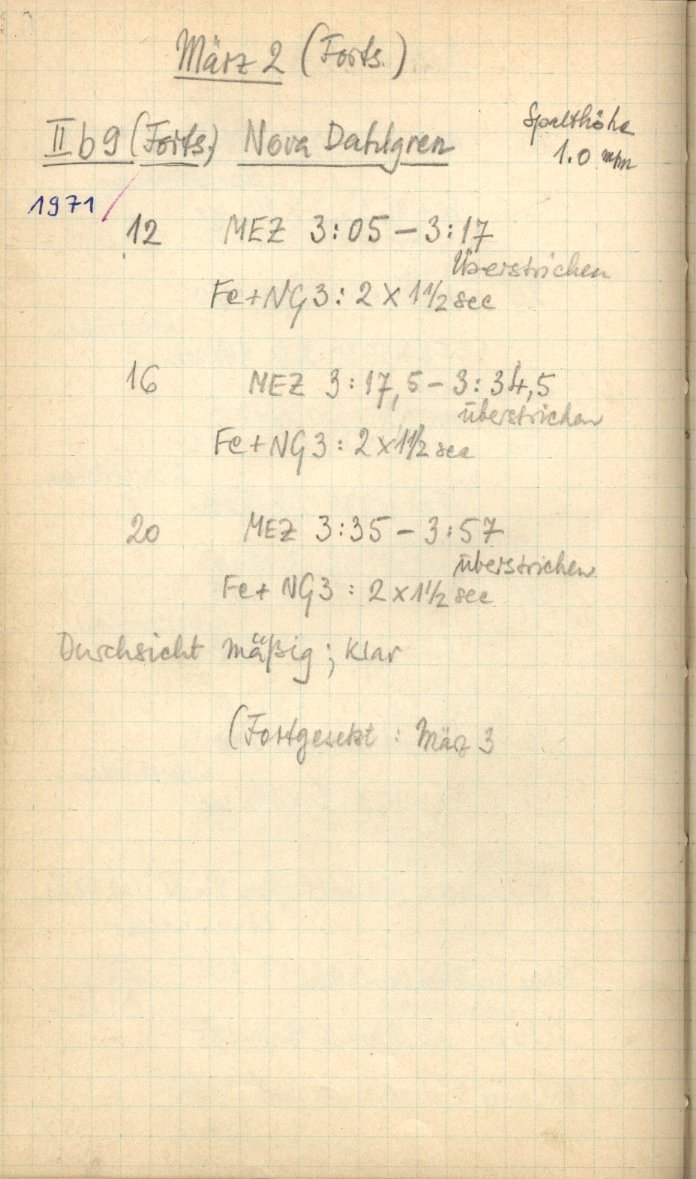 März 2 (Forts.)
II b 9 (Forts.) Nova Dahlgren
Spalthöhe
1.0 mm
1971
12 MEZ 3:05 – 3:17
Überstrichen
Fe+NG3: 2 x 1 1/2 sec
16 MEZ 3:17,5 – 3:34,5
überstrichen
Fe+NG3: 2 x 1 1/2 sec
20 MEZ 3:35 – 3:57
überstrichen
Fe+NG3: 2 x 1 1/2 sec
Durchsicht mäßig; klar
(Fortgesetzt: März 3